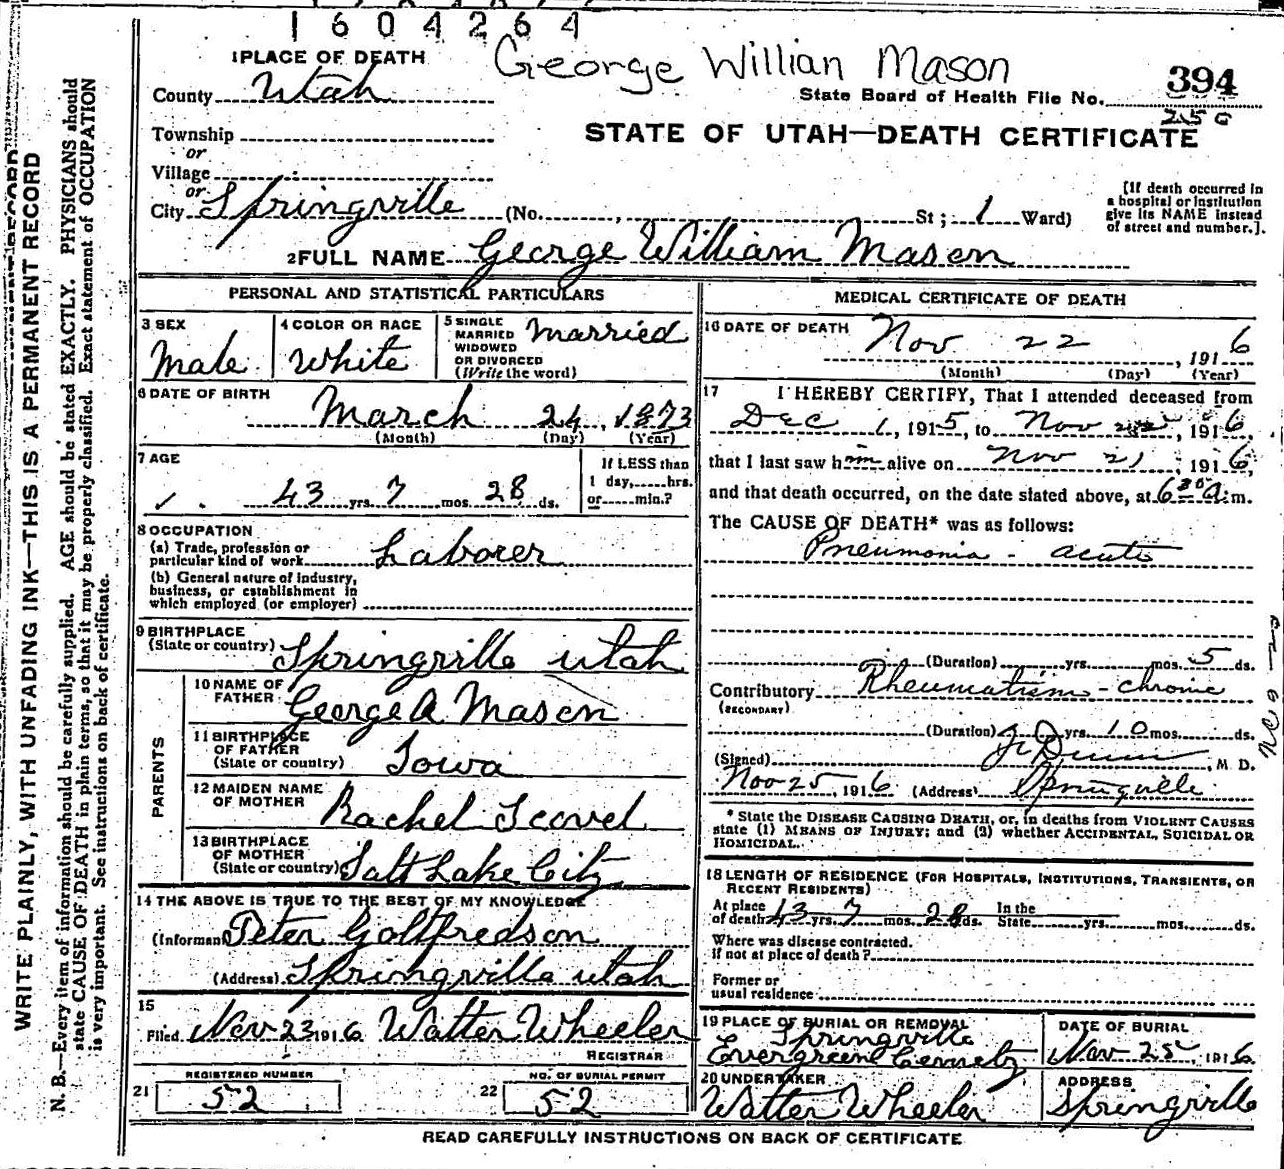 1604264
George Willian Mason
1 PLACE OF DEATH
County Utah
State Board of Health File No. 394
250
Township
or
STATE OF UTAH—DEATH CERTIFICATE
Village
or
City Springville (No. , St ; 1 Ward)
[If death occurred in
a hospital or institution
give its NAME instead
of street and number.].
2 FULL NAME George William Mason
PERSONAL AND STATISTICAL PARTICULARS
3 SEX
Male
4 COLOR OR RACE
White
5 SINGLE
MARRIED
WIDOWED
OR DIVORCED
(Write the word)
Married
6 DATE OF BIRTH
March 24, 1873
(Month) (Day) (Year)
7 AGE
43 yrs. 7 mos. 28 ds.
If LESS than
1 day, hrs.
or min.?
8 OCCUPATION
(a) Trade, profession or
particular kind of work Laborer
(b) General nature of industry,
business, or establishment in
which employed (or employer)
9 BIRTHPLACE
(State or country) Springville Utah
PARENTS
10 NAME OF
FATHER George A Mason
11 BIRTHPLACE
OF FATHER
(State or country) Iowa
12 MAIDEN NAME
OF MOTHER Rachel Scovel
13 BIRTHPLACE
OF MOTHER
(State or country) Salt Lake City
14 THE ABOVE IS TRUE TO THE BEST OF MY KNOWLEDGE
(Informant Peter Gottfredson
(Address) Springville Utah
15
Filed Nov 23 1916 Walter Wheeler
REGISTRAR
REGISTERED NUMBER
21 52
NO. OF BURIAL PERMIT
22 52
MEDICAL CERTIFICATE OF DEATH
16 DATE OF DEATH Nov 22, 1916
(Month) (Day) (Year)
17 I HEREBY CERTIFY, That I attended deceased from
Dec 1, 1915, to Nov 22, 1916,
that I last saw him alive on Nov 21, 1916,
and that death occurred, on the date stated above, at 6 30 A. m.
The CAUSE OF DEATH* was as follows:
Pneumonia - acute
(Duration) yrs. mos. 5 ds.
Contributory Rheumatism - chronic
(SECONDARY)
(Duration) yrs. 10 mos. ds.
(Signed) Dunn, M. D.
Nov 25, 1916 (Address) Springville
* State the DISEASE CAUSING DEATH, or, in deaths from VIOLENT CAUSES
state (1) MEANS OF INJURY; and (2) whether ACCIDENTAL, SUICIDAL OR
HOMICIDAL.
18 LENGTH OF RESIDENCE (FOR HOSPITALS, INSTITUTIONS, TRANSIENTS, OR
RECENT RESIDENTS)
At place
of death 43 yrs. 7 mos. 28 ds. In the
State yrs. mos. ds.
Where was disease contracted.
if not at place of death?
Former or
usual residence
19 PLACE OF BURIAL OR REMOVAL
Springville
Evergreen Cemetery
DATE OF BURIAL
Nov 25, 1916
20 UNDERTAKER
Walter Wheeler
ADDRESS
Springville
READ CAREFULLY INSTRUCTIONS ON BACK OF CERTIFICATE
WRITE PLAINLY, WITH UNFADING INK—THIS IS A PERMANENT RECORD
N. B.—Every item of information should be carefully supplied. AGE should be stated EXACTLY. PHYSICIANS should
state CAUSE OF DEATH in plain terms, so that it may be properly classified. Exact statement of OCCUPATION
is very important. See instructions on back of certificate.